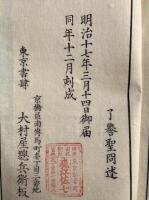 了譽聖冏述
明治十七年三月十四日御届
同年十二月刻成
京橋區南傳馬町壱丁目十二番地
東京書肆　大村屋總兵衛板